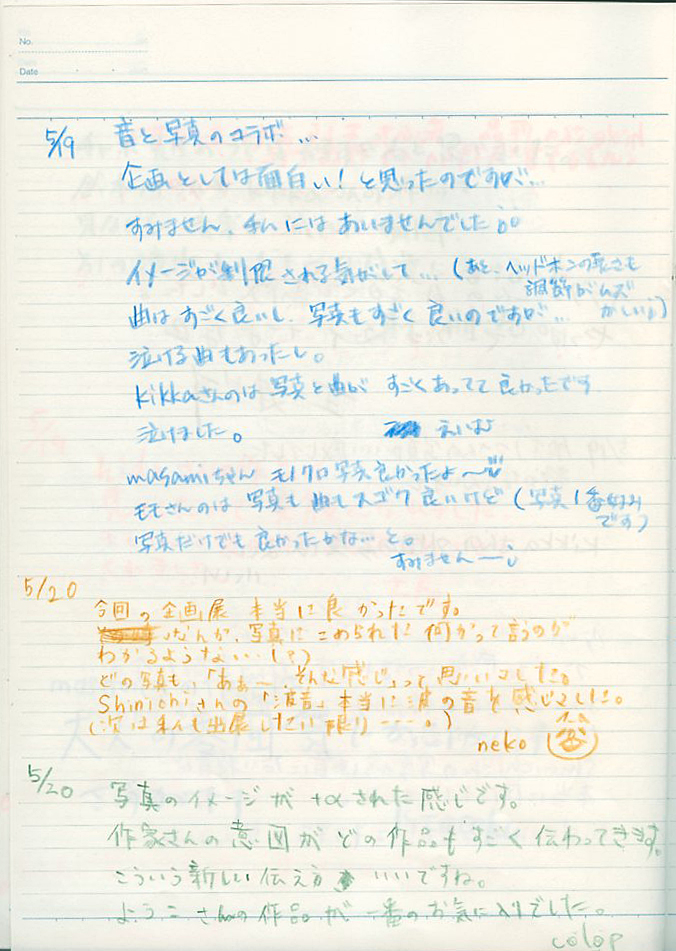 No.
Date
5/19 音と写真のコラボ…
企画としては面白い！と思ったのですが…
すみません、私にはあいませんでした
イメージが制限される気がして…（あと、ヘッドホンの長さも
調節がムズ
かしい）
曲はすごく良いし、写真もすごく良いのですが…
泣ける曲もあったし。
kikkaさんのは写真と曲がすごくあってて良かったです
泣けました。
masamiちゃん モノクロ写真良かったよ〜
モモさんのは写真も曲もスゴク良いけど（写真1番好み
です）
写真だけでも良かったかな…と。
すみませんー
5/20
今回の企画展 本当に良かったです。
なんか、写真にこめられた何かって言うのが
わかるようなない…(？)
どの写真も、「あぁ〜 そんな感じ」って思いました。
Shinichiさんの「波音」本当に波の音を感じました。
（次は私も出展したい限り…。）
neko
5/20 写真のイメージが+αされた感じです。
作家さんの意図がどの作品もすごく伝わってきます。
こういう新しい伝え方 いいですね。
ようこさんの作品が一番のお気に入りでした。